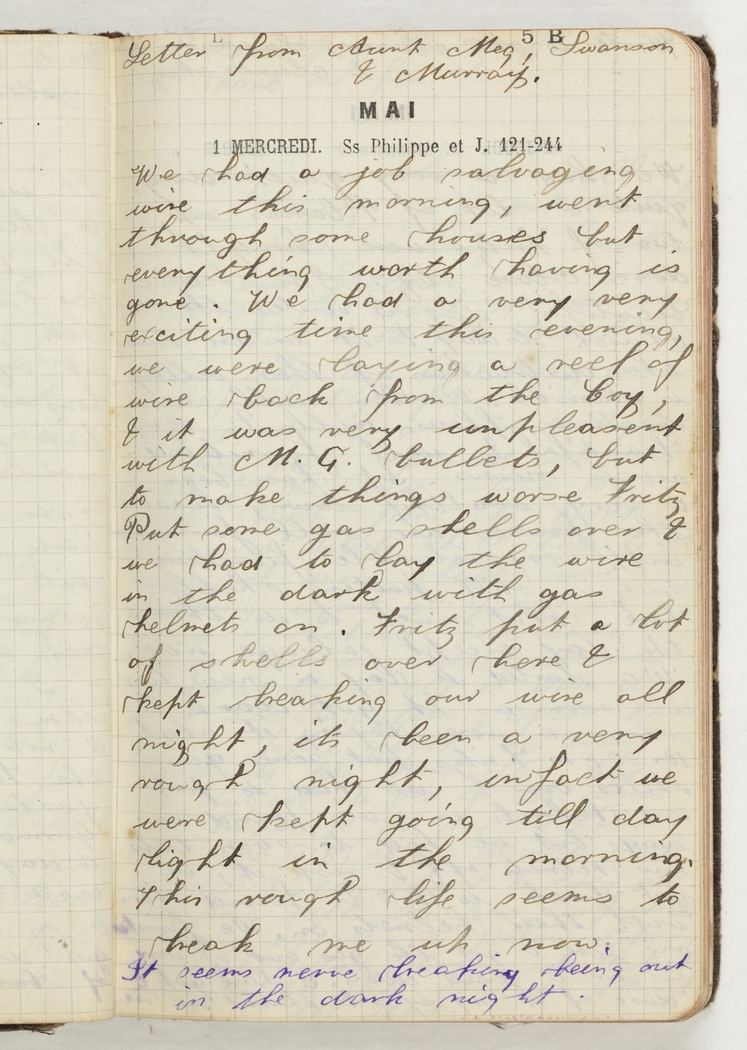 Letter from Aunt Meg, Swanson
& Murray.
5 B
MAI
1 MERCREDI. Ss Philippe et J. 121-244
We had a job salvaging
wire this morning, went
through some houses but
everything worth having is
gone. We had a very very
exciting time this evening,
we were laying a reel of
wire back from the Coy,
& it was very unpleasent
with M. G. bullets, but
to make things worse Fritz
Put some gas shells over &
we had to lay the wire
in the dark with gas
helmets on. Fritz put a lot
of shells over here &
kept breaking our wire all
night, its been a very
rough night, infact we
were kept going till day
light in the morning.
This rough life seems to
break me up now.
It seems nerve breaking being out
in the dark night.